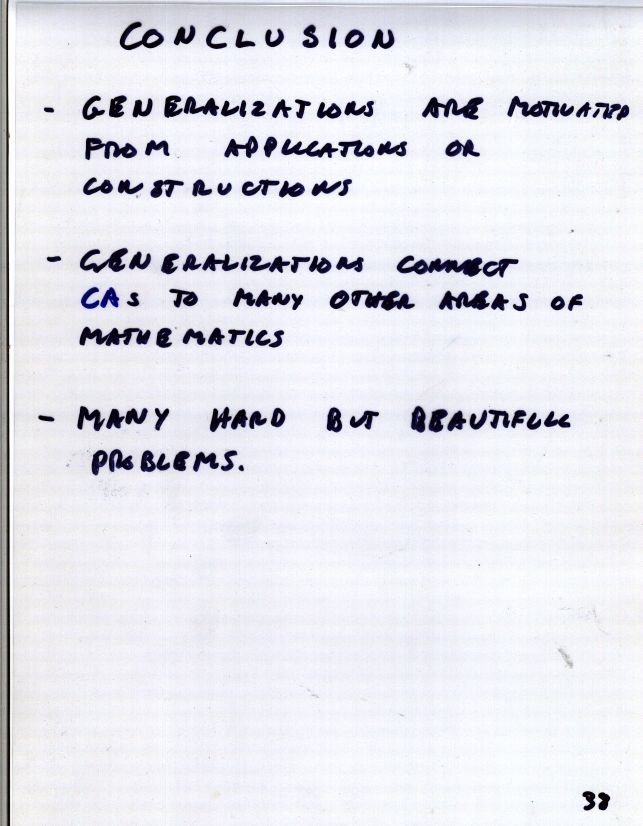 CONCLUSION
- GENERALIZATIONS ARE MOTIVATED
FROM APPLICATIONS OR
CONSTRUCTIONS
- GENERALIZATIONS CONNECT
CAs TO MANY OTHER AREAS OF
MATHEMATICS
- MANY HARD BUT BEAUTIFULL
PROBLEMS.
38